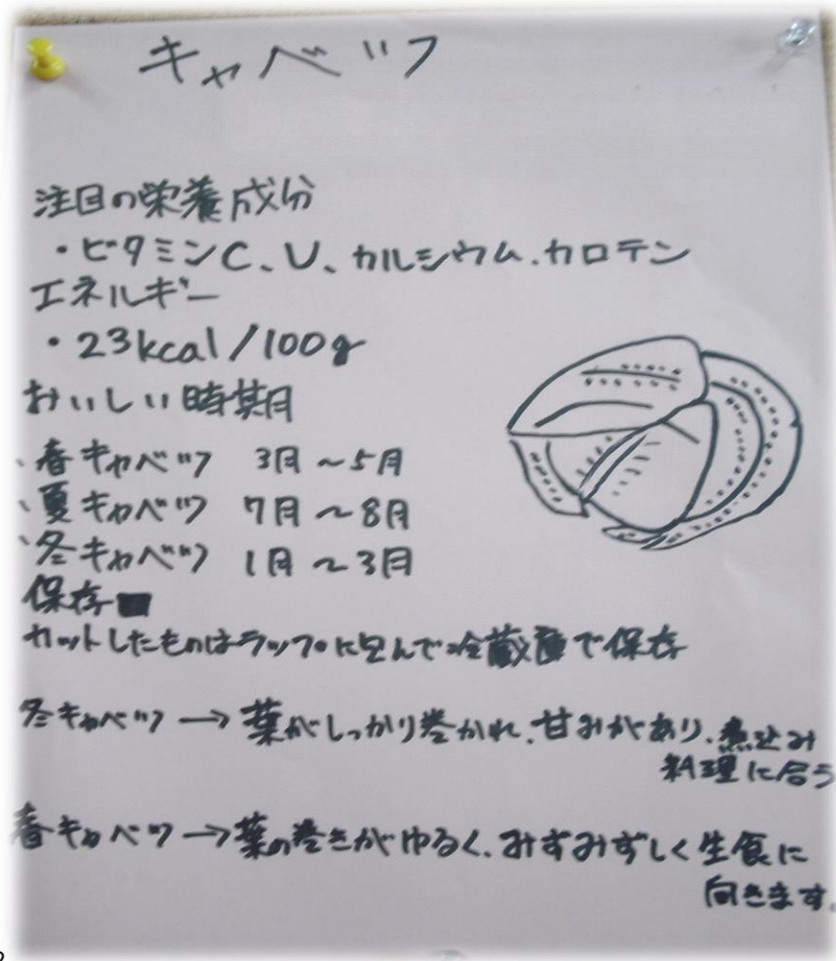 キャベツ
注目の栄養成分
・ビタミンC、U、カルシウム、カロテン
エネルギー
・23kcal/100g
おいしい時期
、春キャベツ 3月~5月
、夏キャベツ 7月~8月
、冬キャベツ 1月~3月
保存
カットしたものはラップに包んで冷蔵庫で保存
冬キャベツ→葉がしっかり巻かれ、甘みがあり、煮込み
料理に合う
春キャベツ→葉の巻きがゆるく、みずみずしく生食に
向きます。